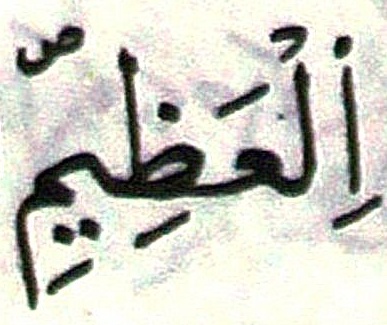 اِ۬لْعَظِيمِۖ